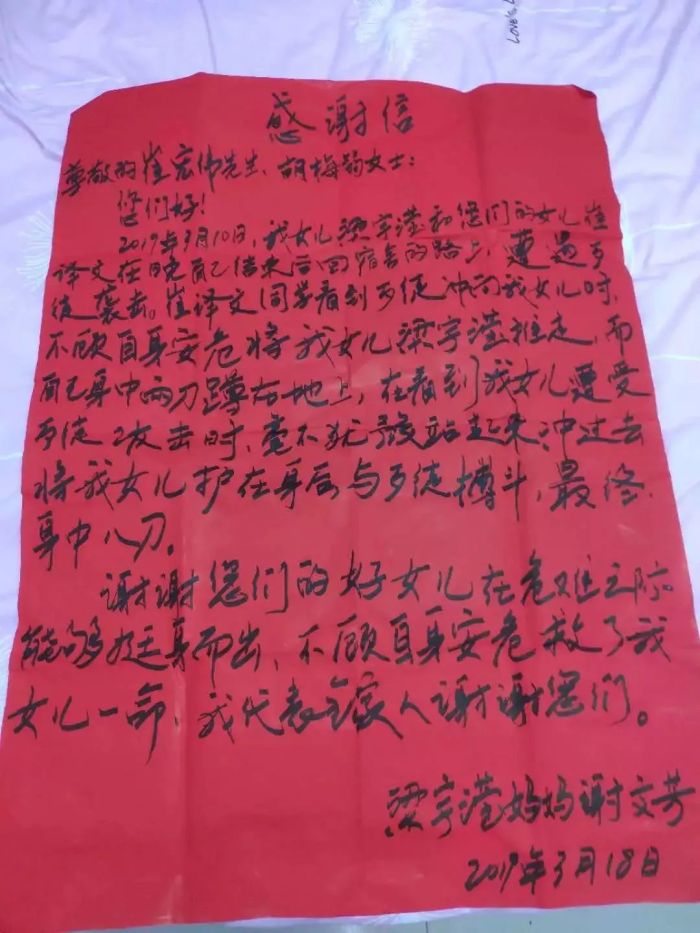 Love's L
感谢信
尊敬的崔宏伟先生、胡梅菊女士：
您们好！
2019年3月10日，我女儿梁宇滢和您们的女儿崔
译文在晚自习结束后回宿舍的路上，遭遇歹
徒袭击。崔译文同学看到歹徒冲向我女儿时，
不顾自身安危将我女儿梁宇滢推走，而
自己身中两刀蹲在地上，在看到我女儿遭受
歹徒攻击时，毫不犹豫站起来冲过去
将我女儿护在身后与歹徒搏斗，最终
身中八刀。
谢谢您们的好女儿在危难之际
能够挺身而出、不顾自身安危救了我
女儿一命，我代表全家人谢谢您们。
梁宇滢妈妈谢文芳
2019年3月18日